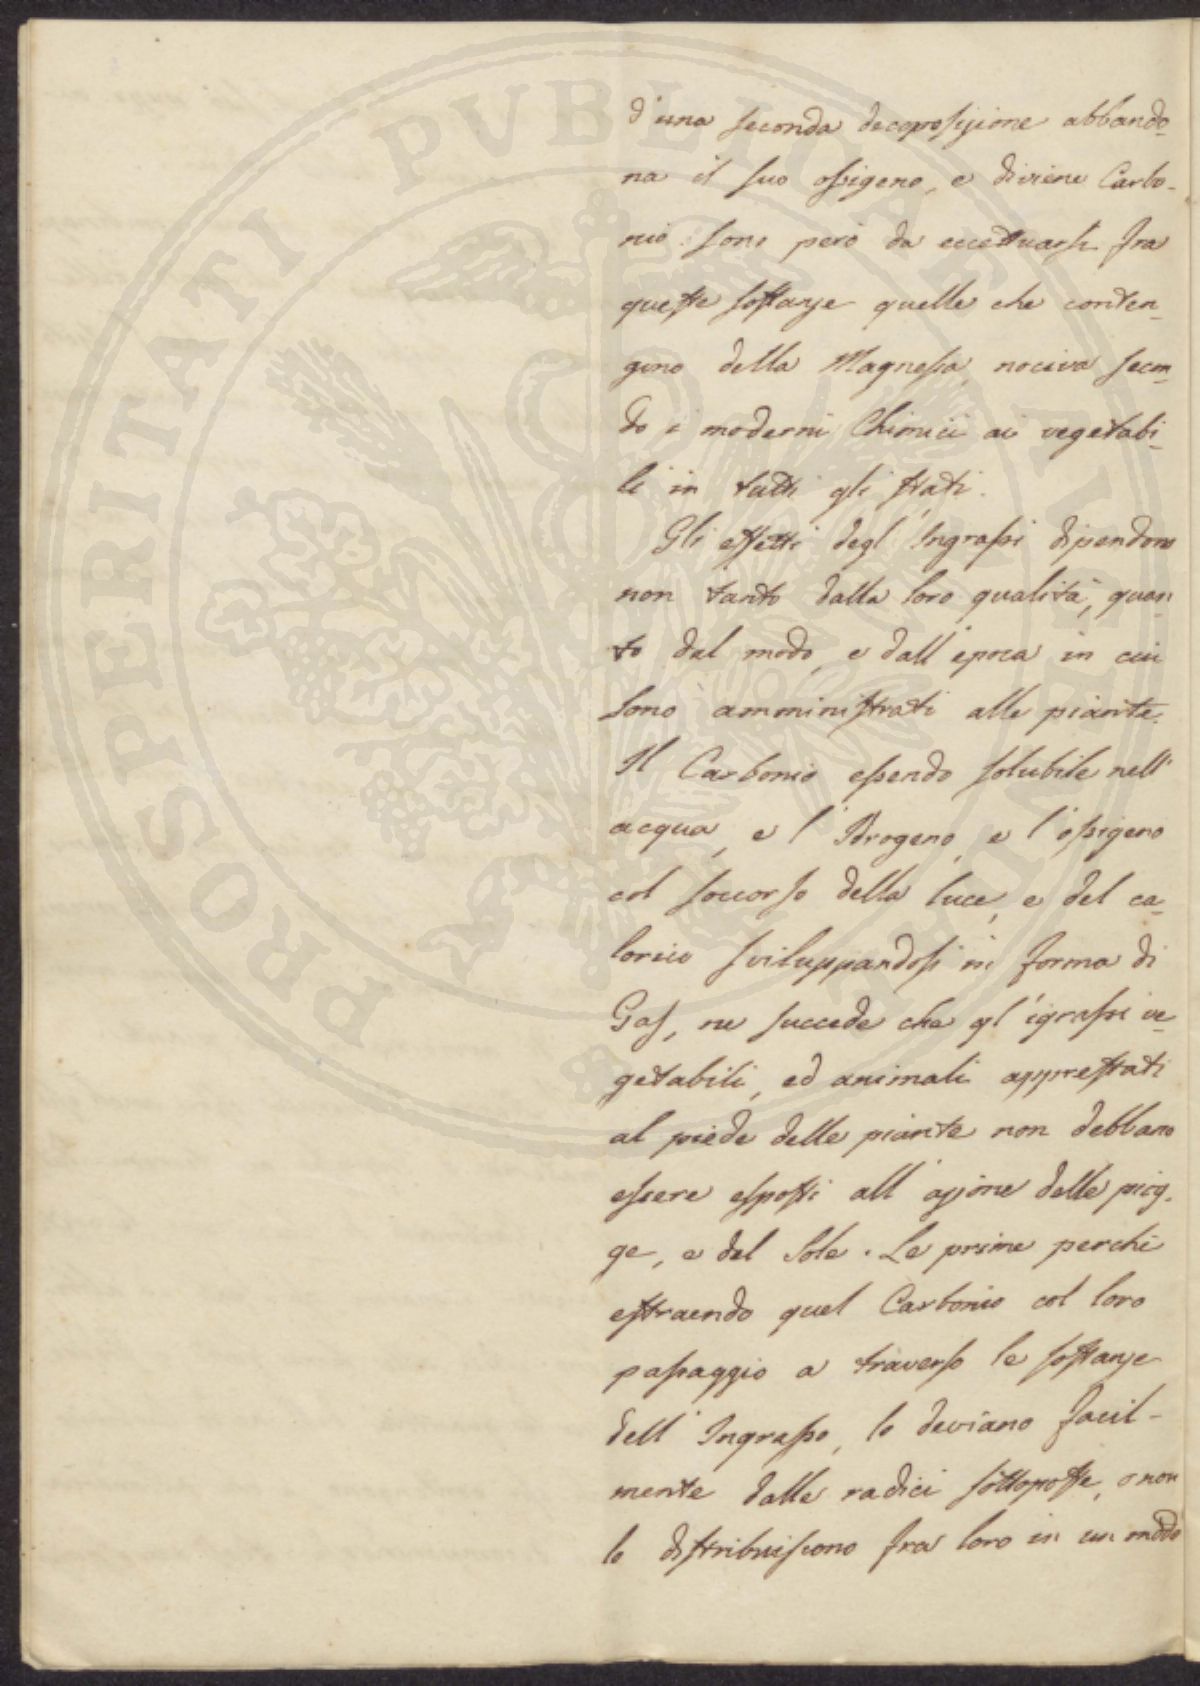 d'una seconda decoposizione abbando-
na il suo ossigeno, e diviene Carbo-
nio. Sono però da eccettuarsi fra
queste sostanze quelle che conten-
gono della Magnesia, nociva secon-
do i moderni Chimici ai vegetabi-
li in tutti gli stati.
Gli effetti degl'Ingrassi dipendono
non tanto dalla loro qualità, quan-
to dal modo, e dall'epoca in cui
sono amministrati alle piante.
Il Carbonio essendo solubile nell'
acqua, e l'Idrogeno, e l'ossigeno
col soccorso della luce, e del ca-
lorico sviluppandosi in forma di
Gas, ne succede che gl'igrassi ve-
getabili, ed animali apprestati
al piede delle piante non debbano
essere esposti all'azione delle piog-
ge, e del Sole. Le prime perchè
estraendo quel Carbonio col loro
passaggio a traverso le sostanze
dell'Ingrasso, lo deviano facil-
mente dalle radici sottoposte, o non
lo distribuiscono fra loro in un modo
PROSPERITATI PVBLICAE AVGENDAE